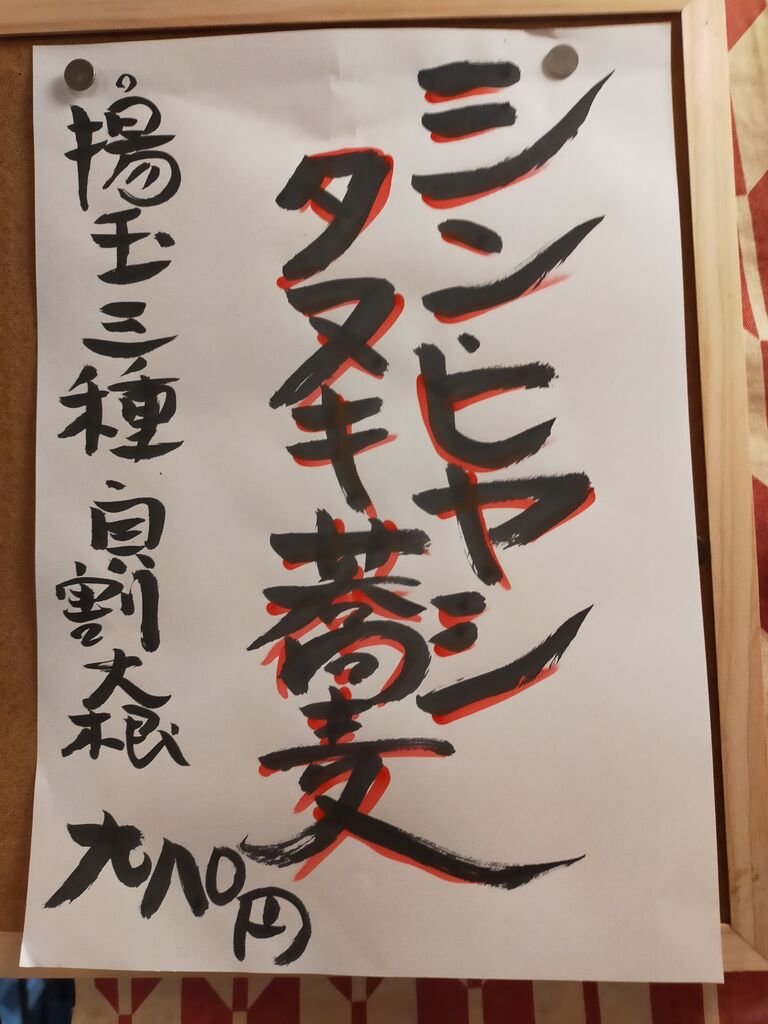 シン・ヒヤシ
タヌキ蕎麦
揚玉三種 貝割大根
九八〇円